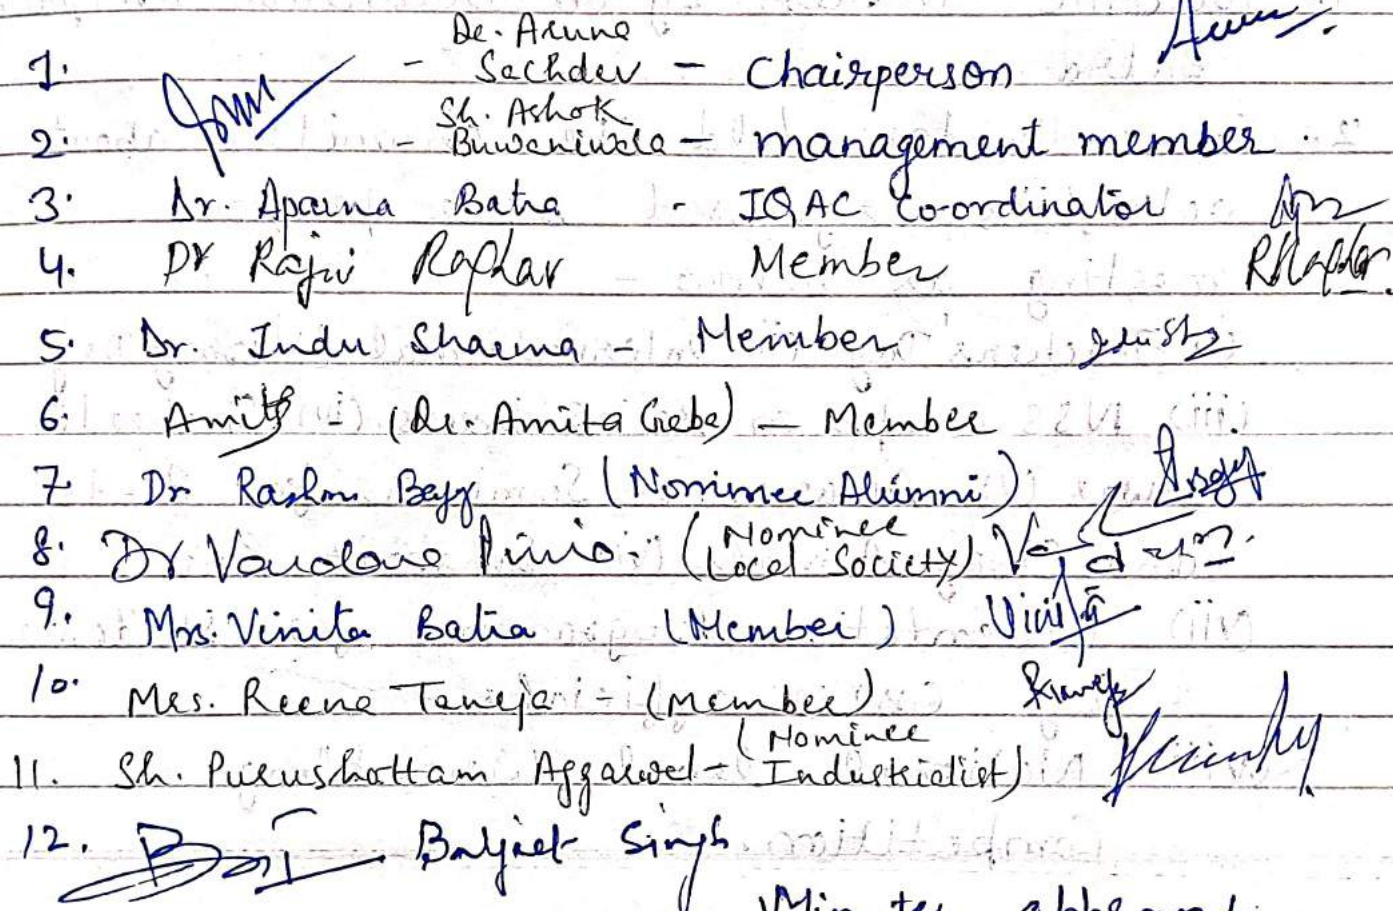 1. - Dr. Aruna Sachdev - Chairperson
2. - Sh. Ashok Buwaniwala - management member.
3. Dr. Aparna Batra - IQAC Co-ordinator
4. Dr Rajiv Raghav Member
5. Dr. Indu Sharma - Member
6. Amita - (Dr. Amita Gaba) - Member
7 Dr Rashmi (Nominee Alumni)
8. Dr Vandana (Nominee Local Society)
9. Mrs. Vinita Batra (Member) Vinita
10. Mrs. Reena Taneja - (Member)
11. Sh. Purushottam Aggarwal - (Nominee Industrialist)
12. Baljeet Singh